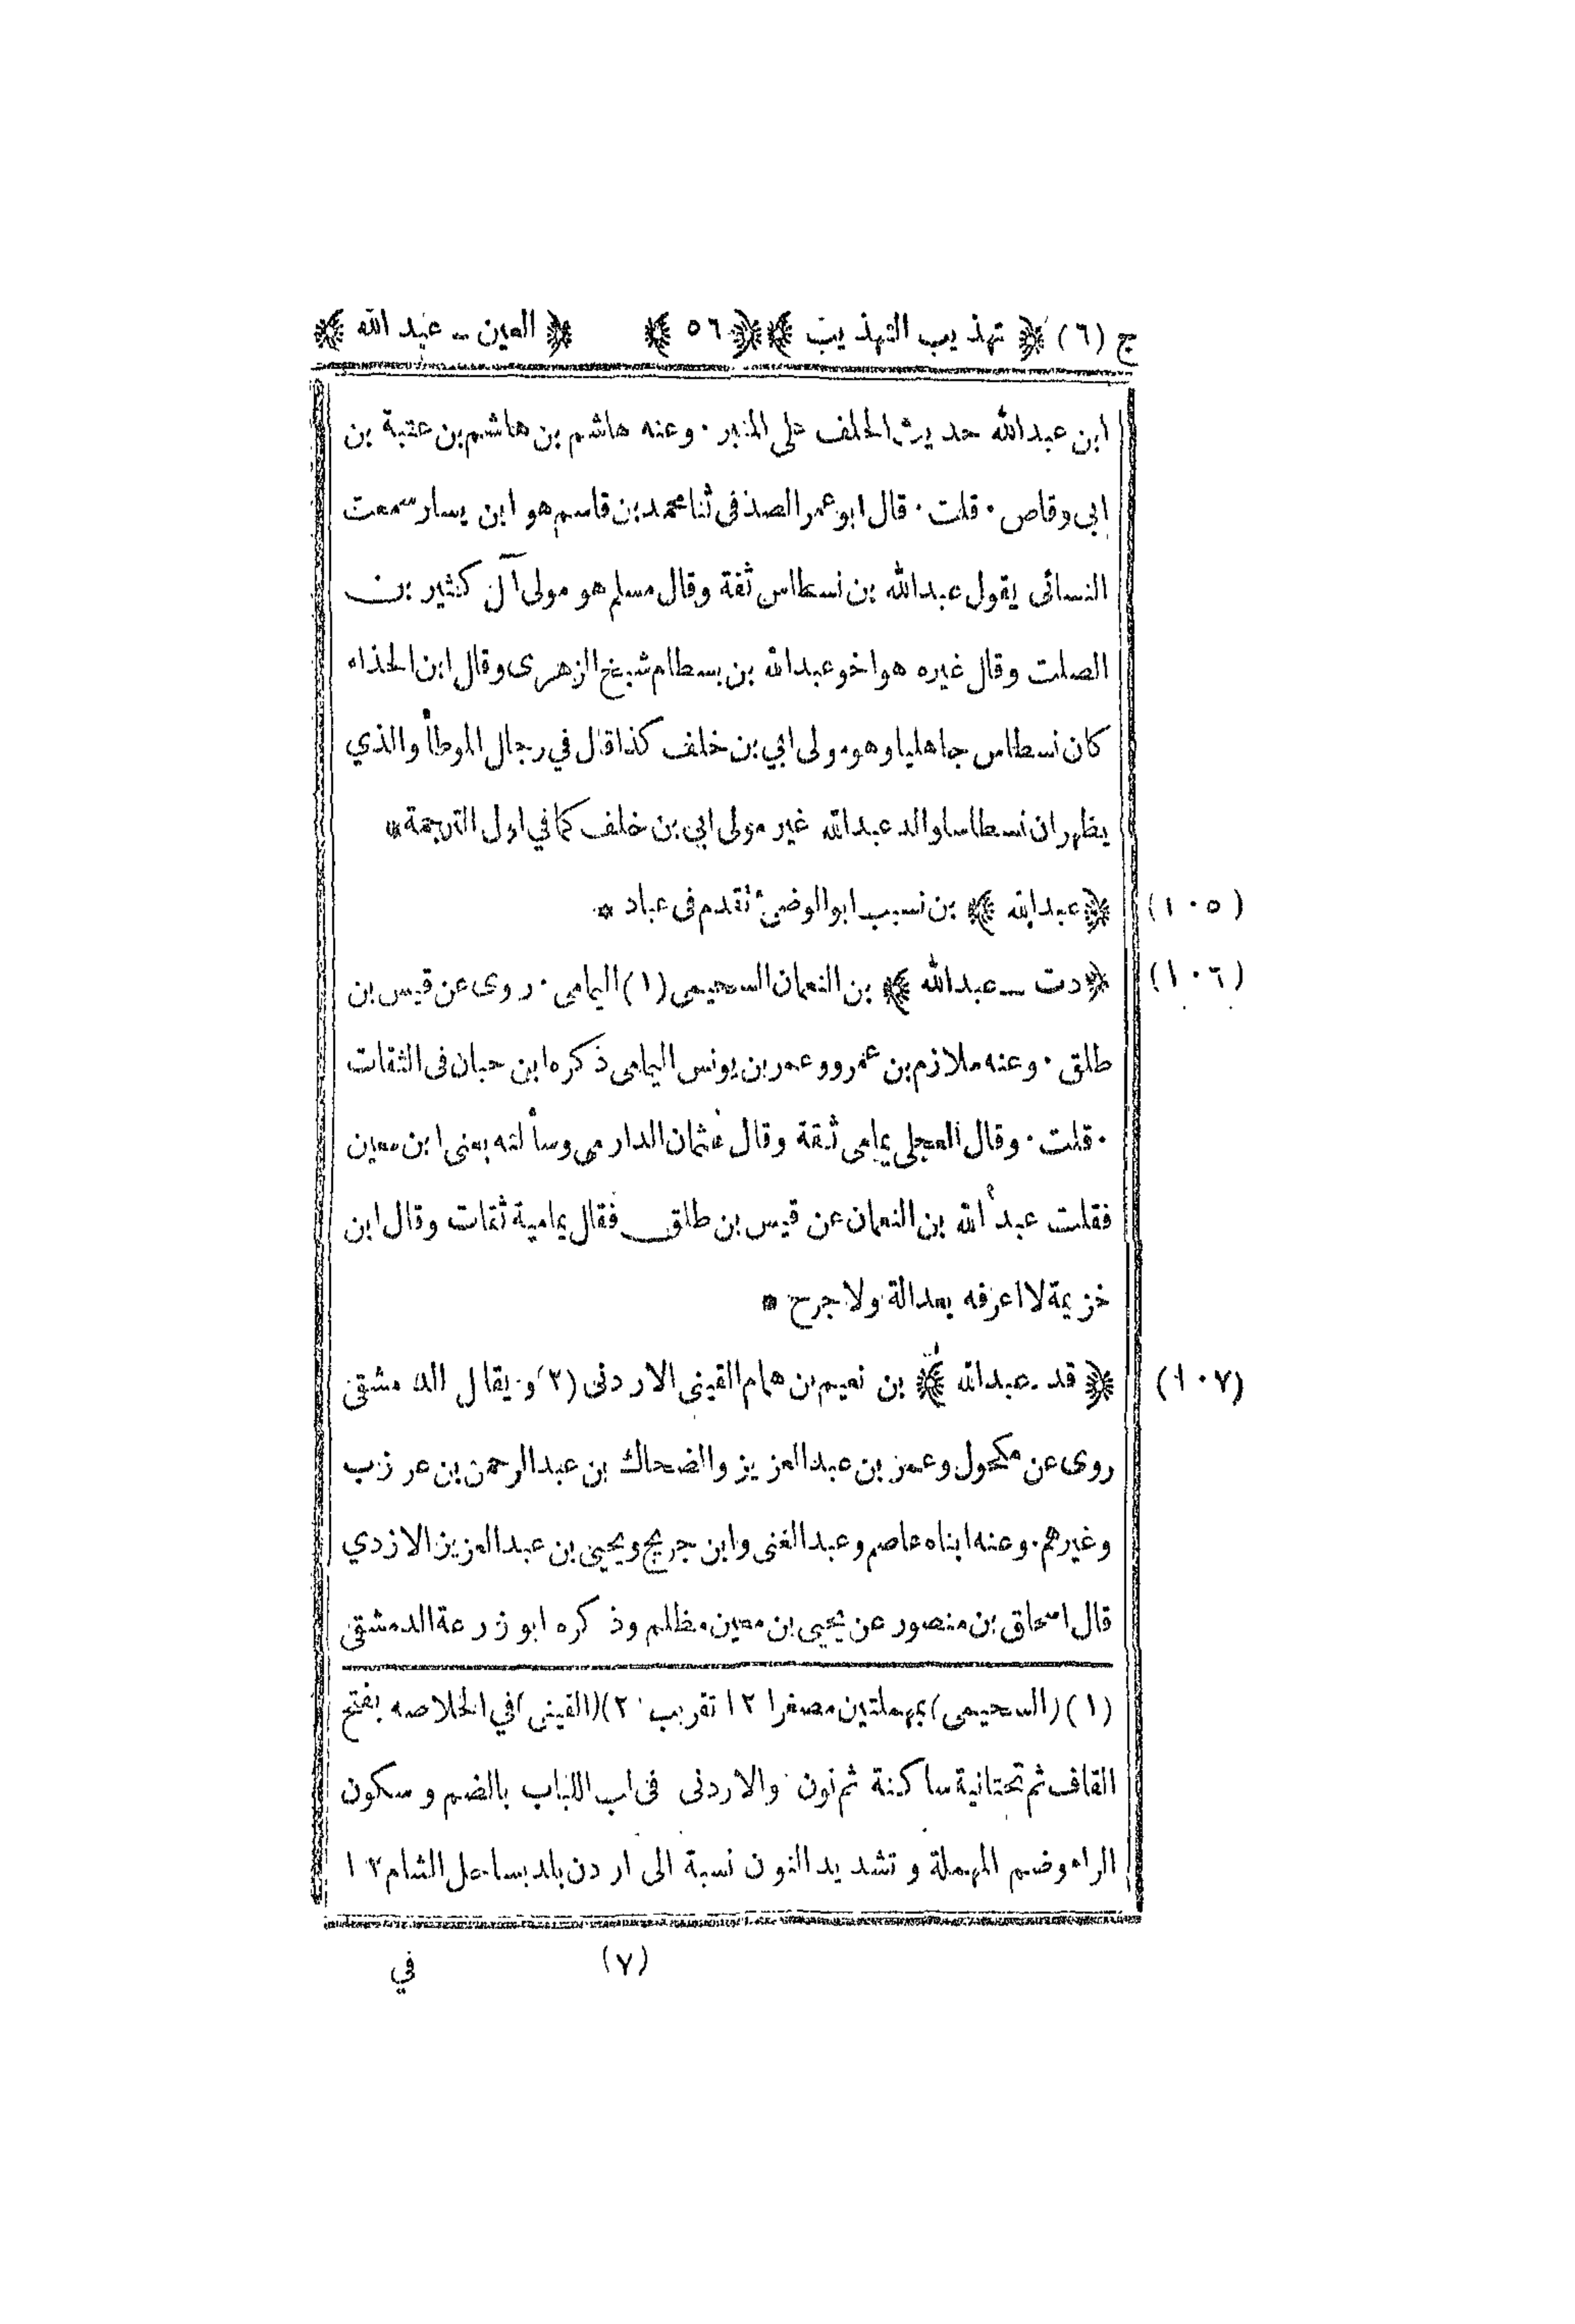 ج (٦) ﴿ تهذيب التهذيب ﴾ ﴿ ٥٦ ﴾ ﴿ العين - عبد الله ﴾
ابن عبدالله حديث الحلف على المنبر ٠ وعنه هاشم بن هاشم بن عتبة بن
ابى وقاص ٠ قلت ٠ قال ابو عمر الصدفى ثنا محمد بن قاسم هو ابن يسار سمعت
النسائى يقول عبدالله بن نسطاس ثقة وقال مسلم هو مولى آل كثير بن
الصلت وقال غيره هو اخو عبدالله بن بسطام شيخ الزهرى وقال ابن الحذاء
كان نسطاس جاهليا وهو مولى ابي بن خلف كذا قال في رجال الموطأ والذي
يظهر ان نسطاسا والد عبدالله غير مولى ابي بن خلف كما في اول الترجمة *
(١٠٥) ﴿ عبدالله ﴾ بن نسيب ابو الوضئ تقدم فى عباد *
(١٠٦) ﴿ دت - عبدالله ﴾ بن النعمان السحيمى (١) اليمامى ٠ روى عن قيس بن
طلق ٠ وعنه ملازم بن عمرو وعمر بن يونس اليمامى ذكره ابن حبان فى الثقات
٠ قلت ٠ وقال العجلى يمامى ثقة وقال عثمان الدارمى وسألته يعنى ابن معين
فقلت عبد الله بن النعمان عن قيس بن طلق فقال يمامية ثقات وقال ابن
خزيمة لا اعرفه بعدالة ولا جرح *
(١٠٧) ﴿ قد - عبدالله ﴾ بن نعيم بن همام القينى الاردنى (٢) ويقال الدمشقى
روى عن مكحول وعمر بن عبدالعزيز والضحاك بن عبدالرحمن بن عرزب
وغيرهم ٠ وعنه ابناه عاصم وعبدالغنى وابن جريج ويحيى بن عبدالعزيز الازدي
قال اسحاق بن منصور عن يحيى بن معين مظلم وذكره ابو زرعة الدمشقى
(١) (السحيمى) بمهملتين مصغرا ١٢ تقريب (٢) (القينى) في الخلاصه بفتح
القاف ثم تحتانية ساكنة ثم نون والاردنى فى لب اللباب بالضم وسكون
الراء وضم المهملة وتشديد النون نسبة الى اردن بلد بساحل الشام ١٢
(٧) في